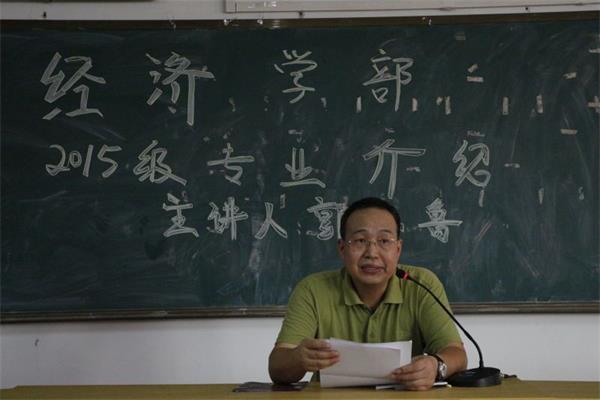 经济学部
2015级专业介绍
主讲人郭鲁